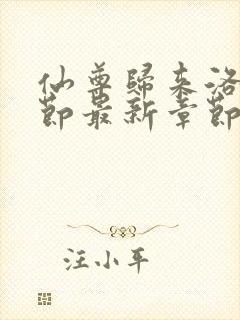 仙尊歸來洛
節最新章節
汪小平